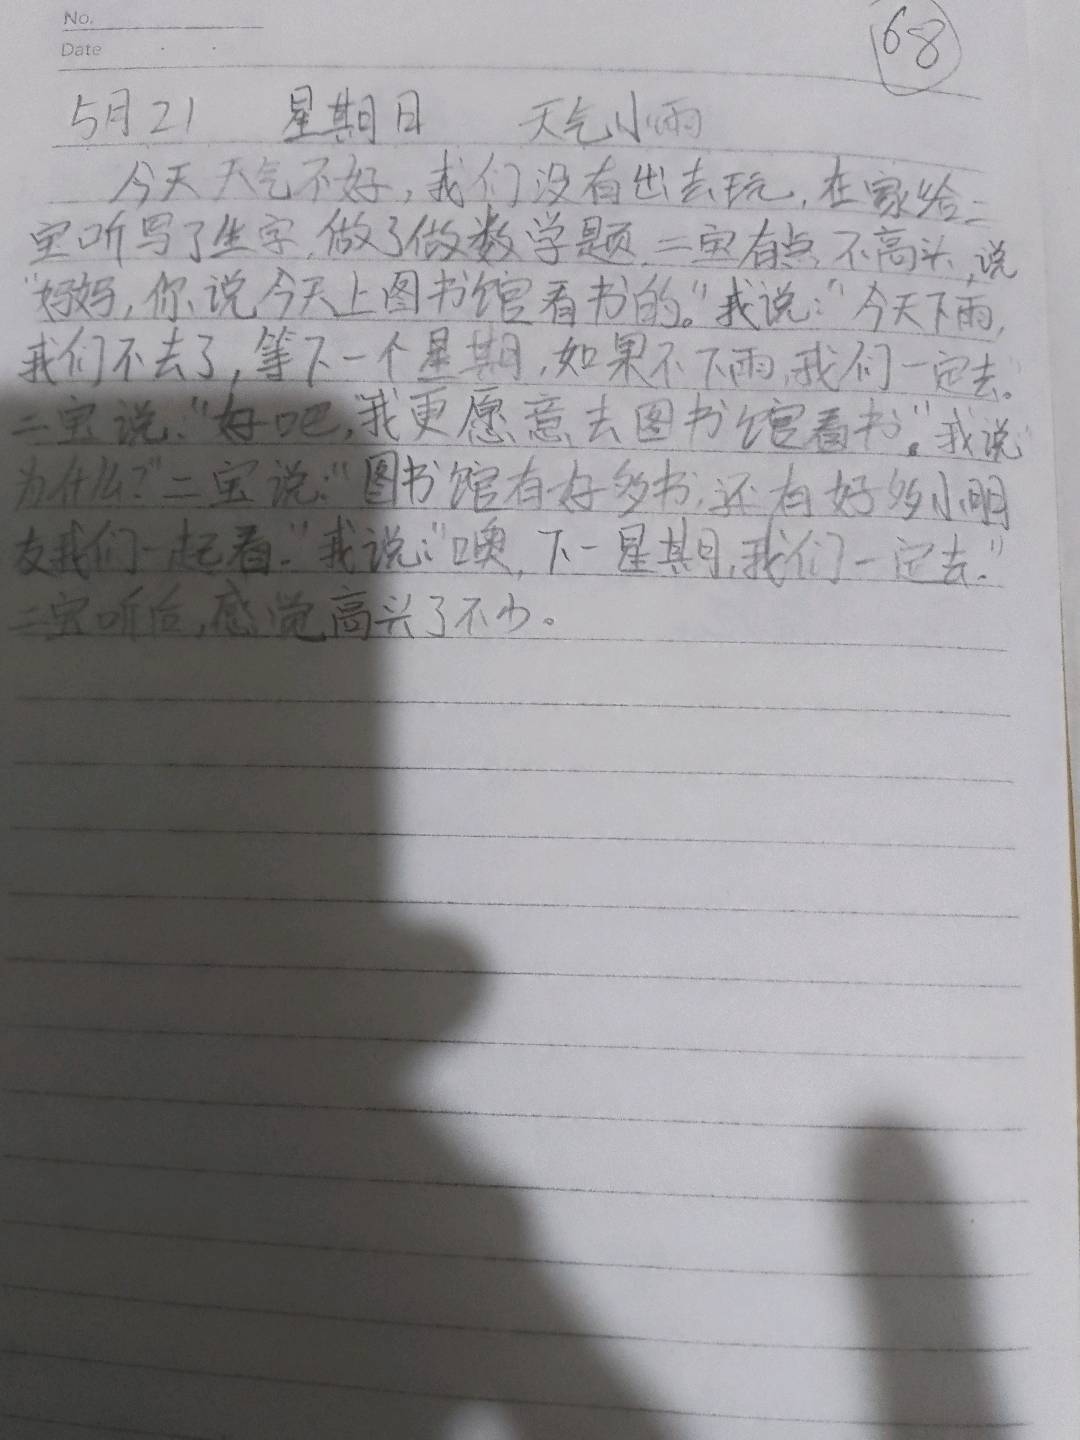 No.
Date
68
5月21 星期日 天气小雨
今天天气不好,我们没有出去玩,在家给二
宝听写了生字,做了做数学题,二宝有点不高头,说
"妈妈,你说今天上图书馆看书的。"我说:"今天下雨,
我们不去了,等下一个星期,如果不下雨,我们一定去。"
二宝说:"好吧,我更愿意去图书馆看书"。我说:
为什么?"二宝说:"图书馆有好多书,还有好多小朋
友我们一起看."我说:"噢,下一星期,我们一定去."
二宝听后,感觉高头了不少。